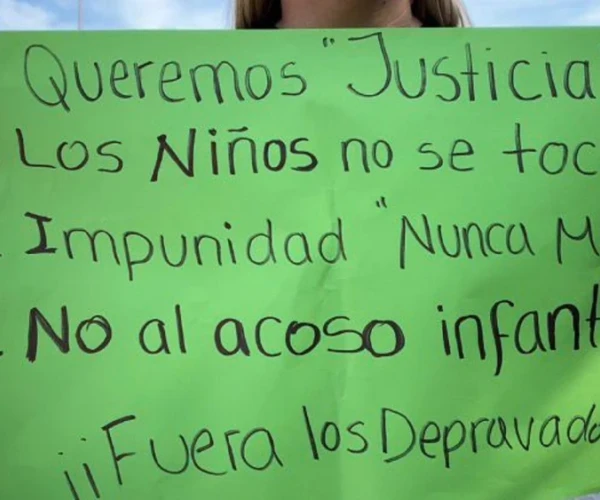 Queremos "Justicia
Los Niños no se toc
Impunidad "Nunca M
No al acoso infant
¡¡Fuera los Depravado